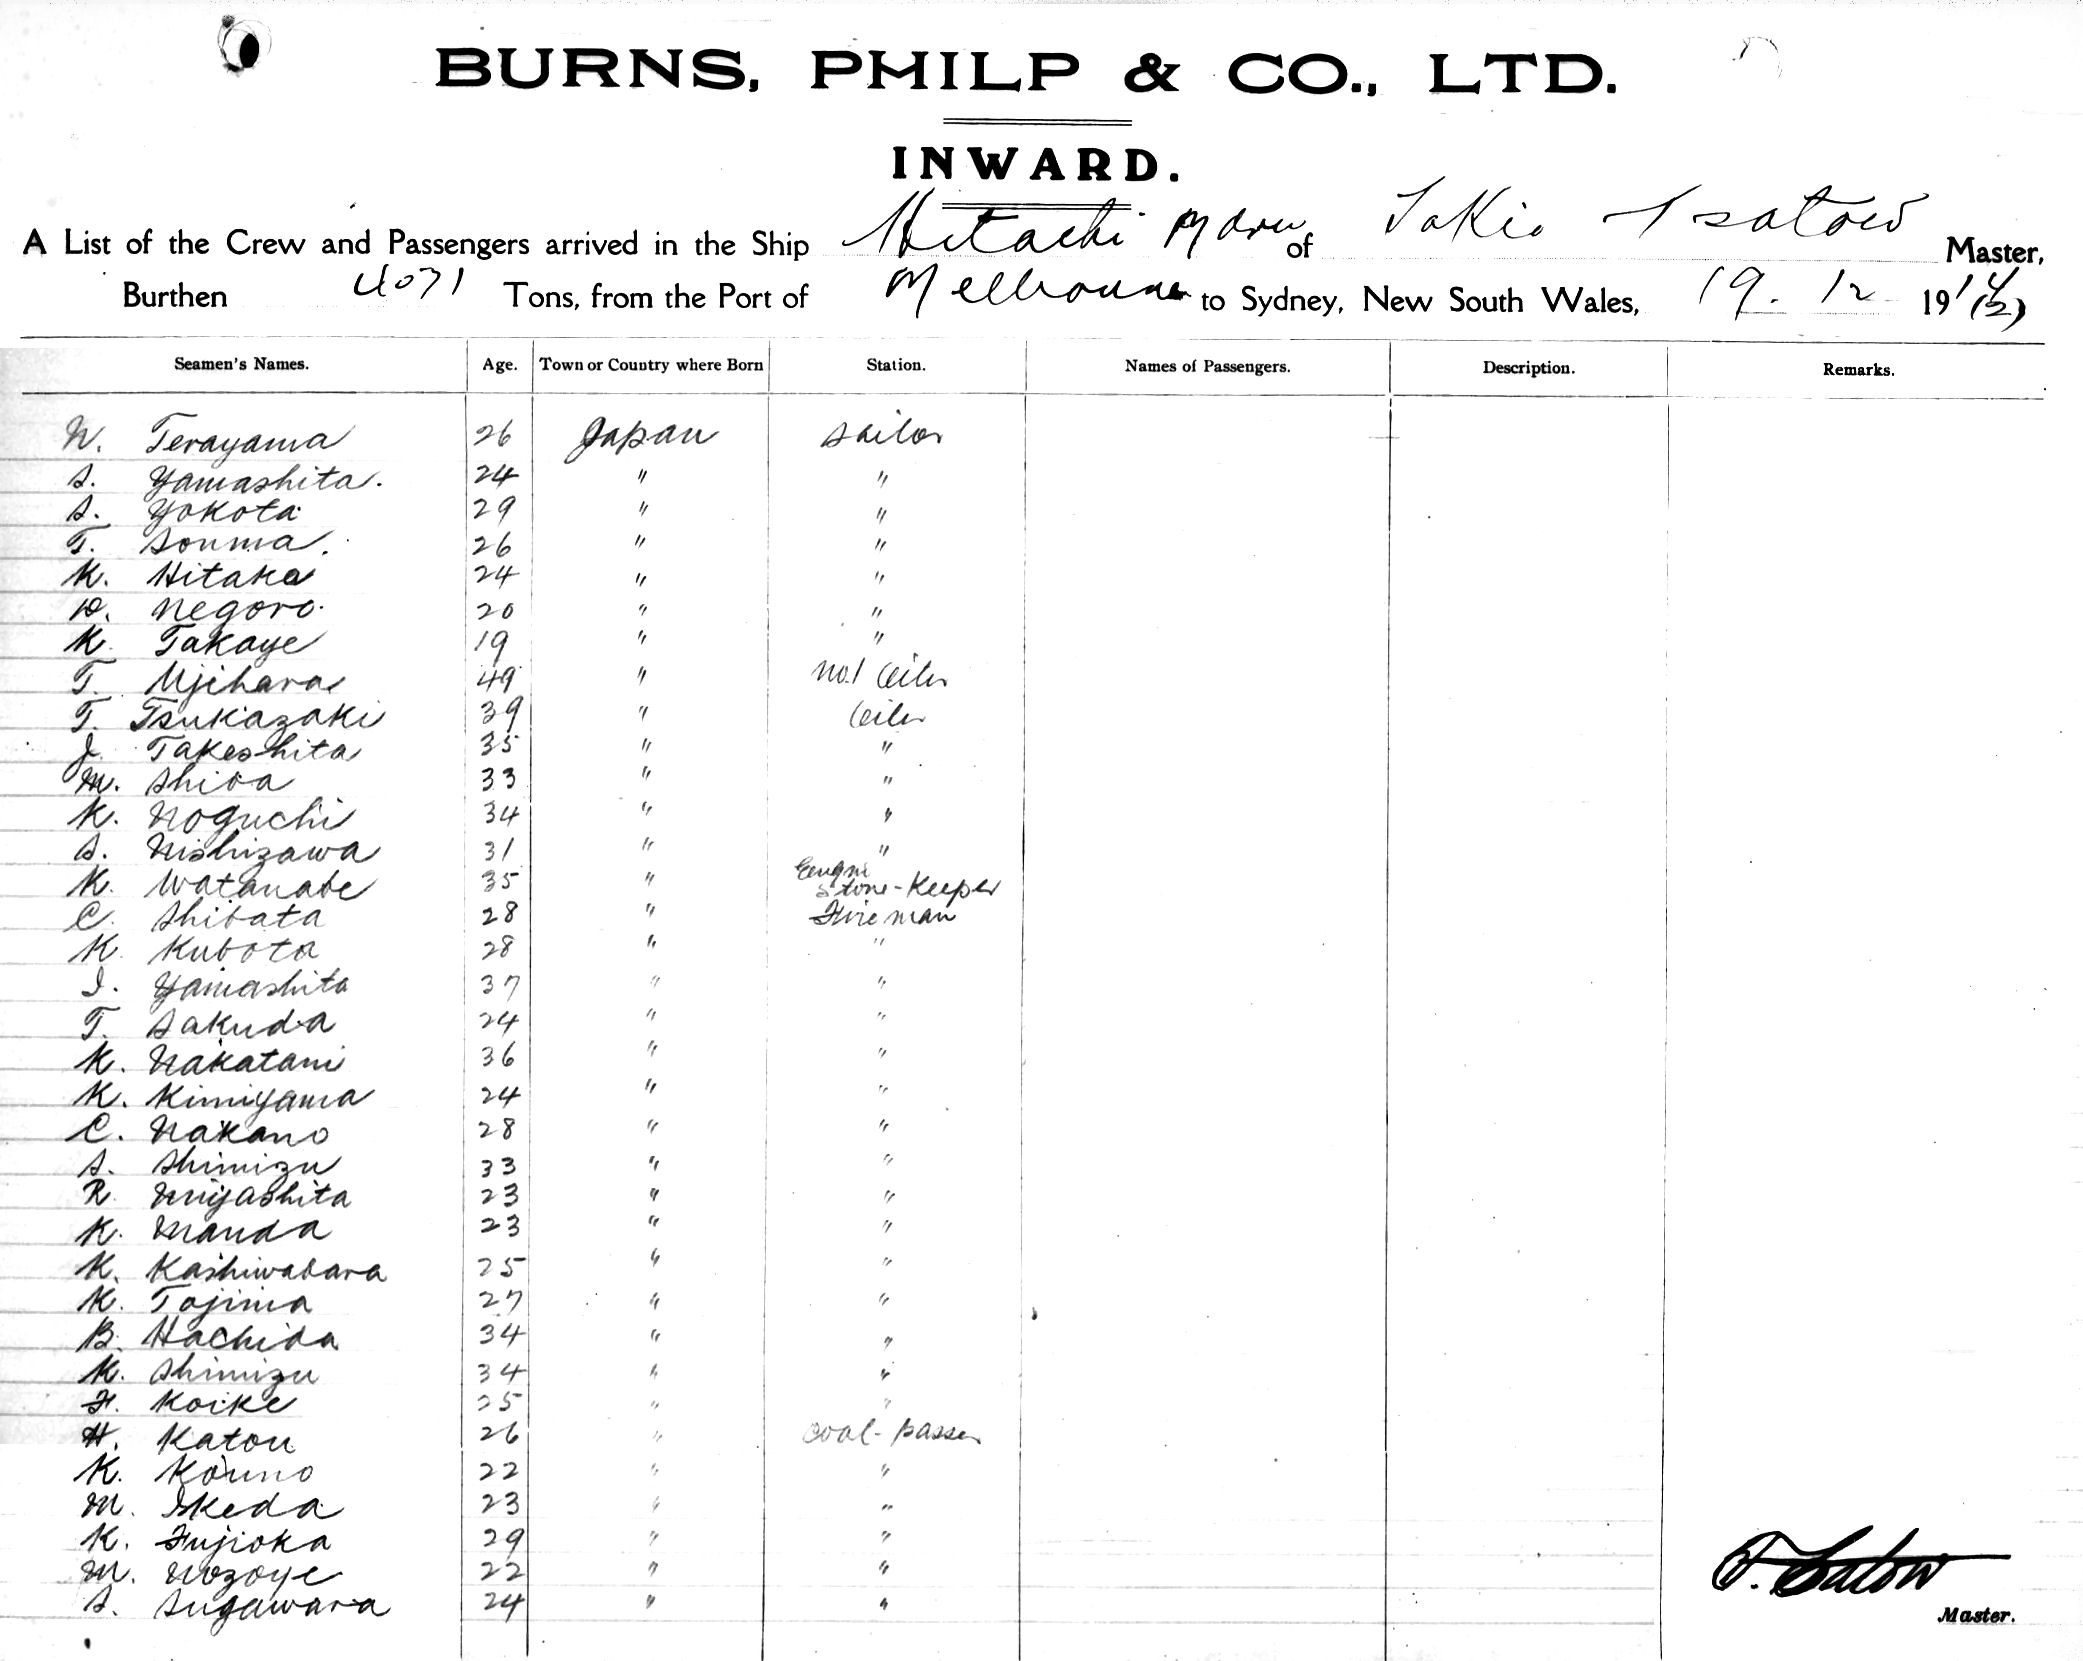 BURNS, PHILP & CO., LTD.
INWARD.
A List of the Crew and Passengers arrived in the Ship Hitachi Maru of Tokio Master,
Burthen 4071 Tons, from the Port of Melbourne to Sydney, New South Wales, 19. 12 1914 (2)
Seamen's Names. Age. Town or Country where Born Station. Names of Passengers. Description. Remarks.
N. Terayama 26 Japan Sailor
S. Yamashita. 24 " "
S. Yokota 29 " "
T. Sonma. 26 " "
K. Hitaka 24 " "
D. Negoro. 20 " "
K. Takaye 19 " "
T. Ujihara 49 " No.1 Oiler
T. Tsukazaki 39 " Oiler
J. Takeshita 35 " "
M. Shiba 33 " "
K. Noguchi 34 " "
S. Nishizawa 31 " "
K. Watanabe 35 " Store-Keeper
C. Shibata 28 " Fireman
K. Kubota 28 " "
I. Yamashita 37 " "
T. Sakuda 24 " "
K. Nakatani 36 " "
K. Kimiyama 24 " "
C. Nakano 28 " "
S. Shimizu 33 " "
R. Miyashita 23 " "
K. Manda 23 " "
K. Kashiwabara 25 " "
K. Tojima 27 " "
B. Hachida 34 " "
K. Shimizu 34 " "
F. Koike 25 " "
H. Katou 26 " Coal-passer
K. Kouno 22 " "
M. Ikeda 23 " "
K. Fujioka 29 " "
M. Nozoye 22 " "
S. Sugawara 24 " "
T. Satow
Master.